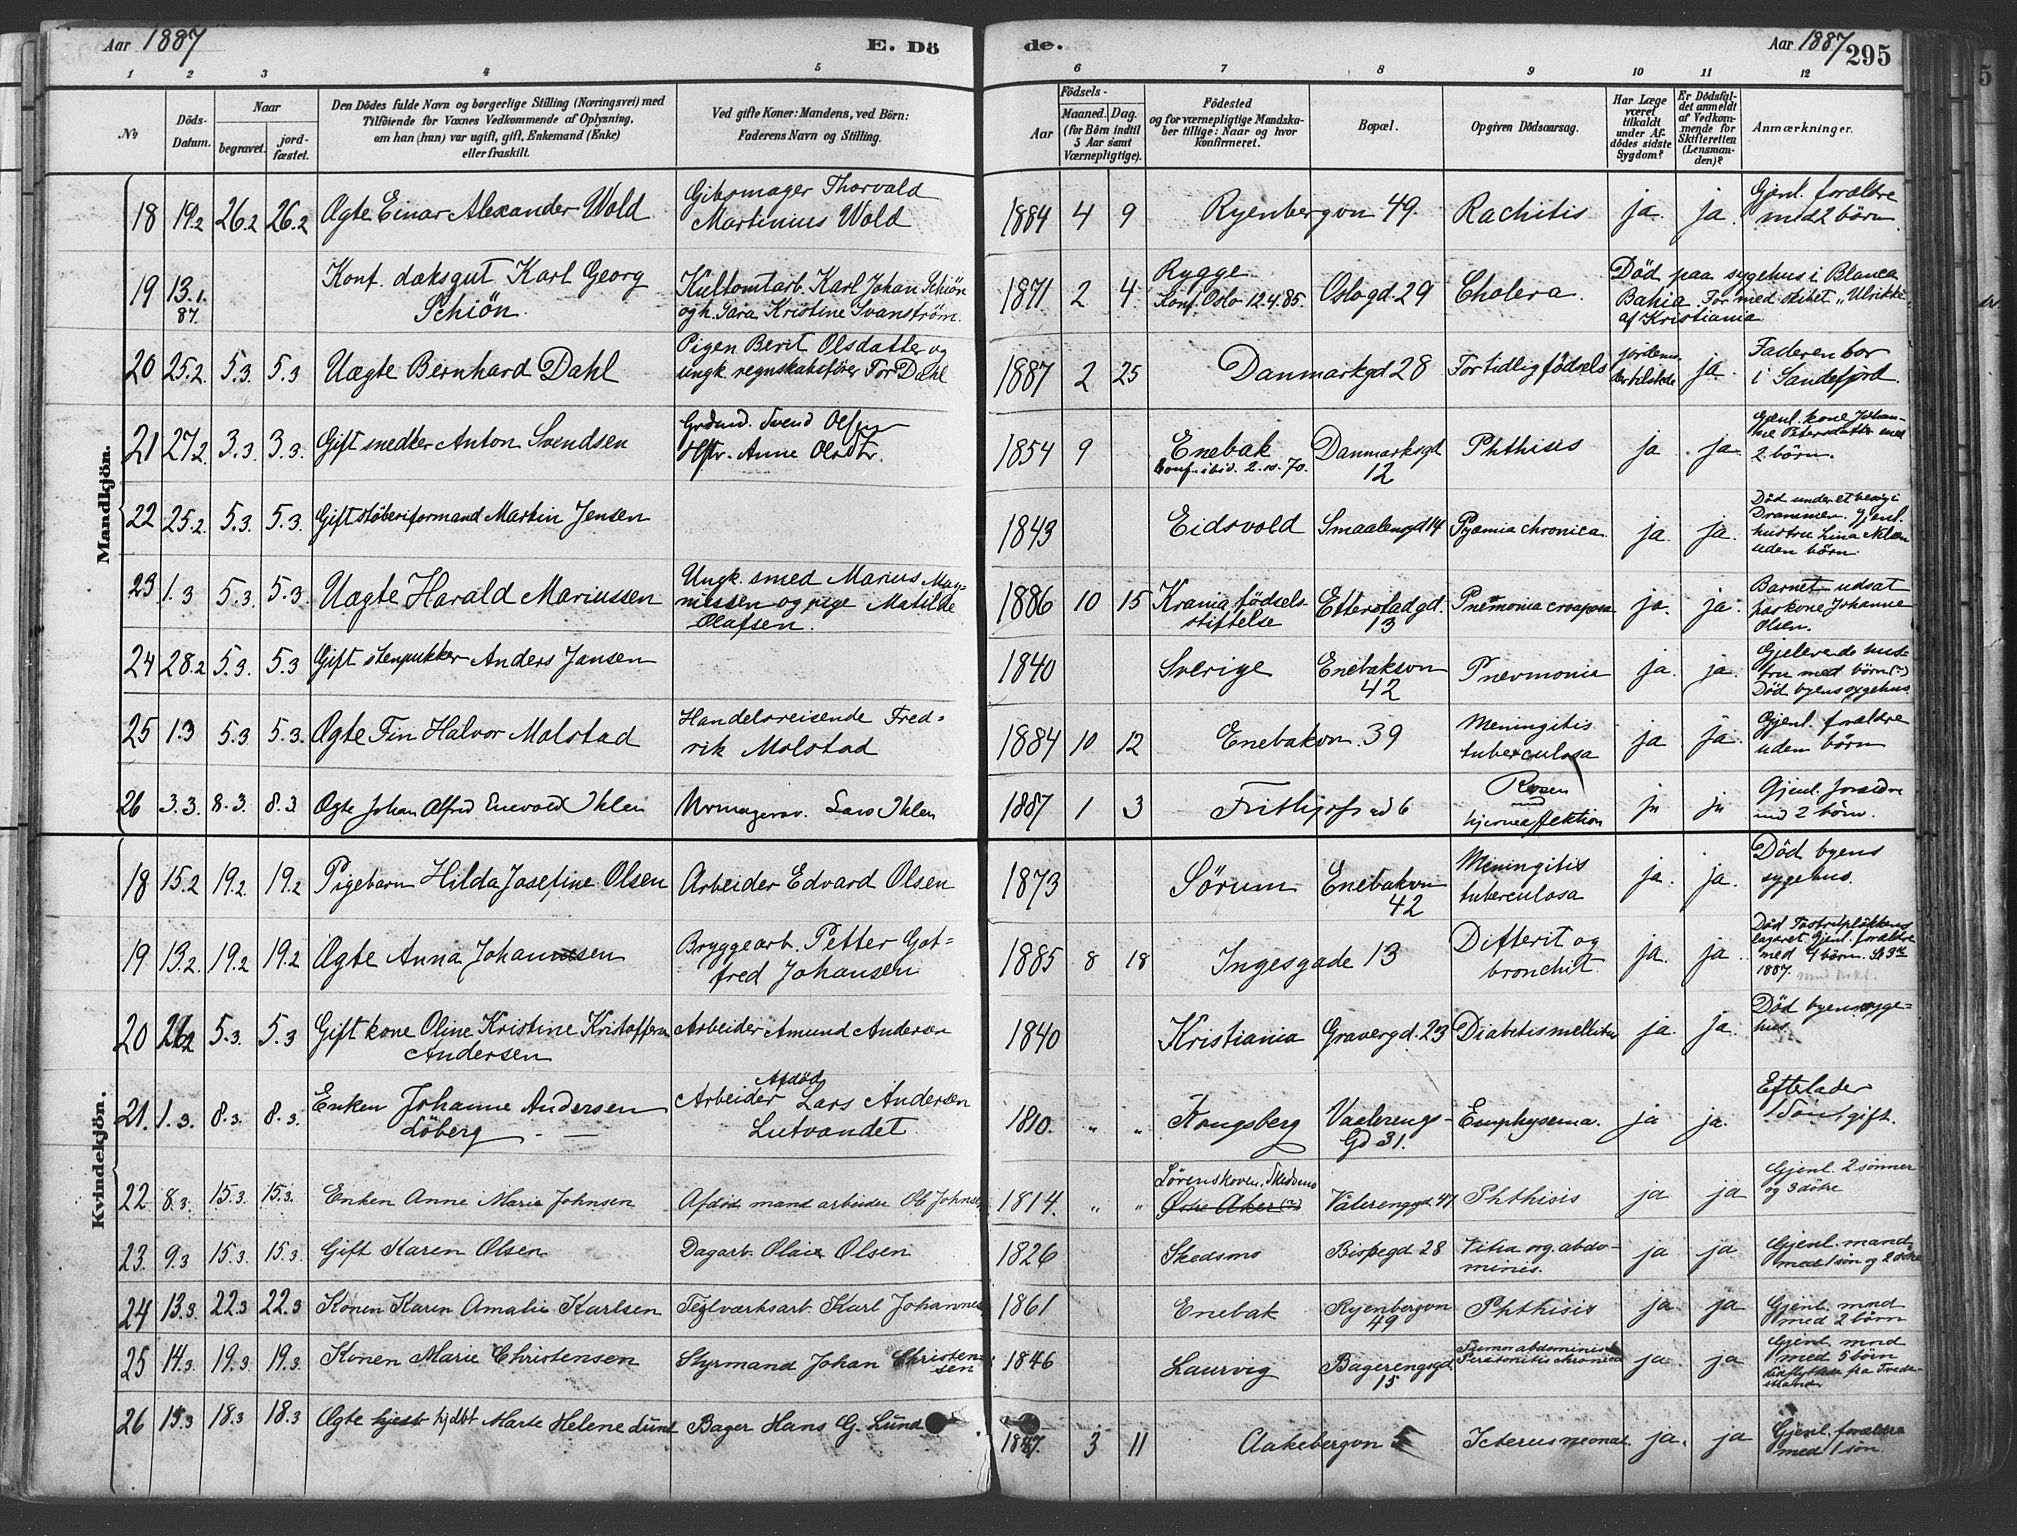 Aar 1887 E. Dö de. Aar 1887 295
1 2 3 4 5 6 7 8 9 10 11 12
No
Döds-Datum.
Naar
begravet. jord-fæstet.
Den Dödes fulde Navn og borgerlige Stilling (Næringsvei) med
Tilföiende for Voxnes Vedkommende af Oplysning,
om han (hun) var ugift, gift, Enkemand (Enke)
eller fraskilt.
Ved gifte Koner: Mandens, ved Börn:
Faderens Navn og Stilling.
Födsels-
Aar Maaned. Dag.
(for Börn indtil
5 Aar samt
Værnepligtige).
Födested
og for værnepligtige Mandska-
ber tillige: Naar og hvor
konfirmeret.
Bopæl.
Opgiven Dödsaarsag.
Har Læge
været
tilkaldt
under Af-
dödes sidste
Sygdom?
Er Dödsfal-
det anmeldt
af Vedkom-
mende for
Skifteretten
(Lensman-
den)?
Anmærkninger.
Mandkjön.
18 19.2 26.2 26.2 Ægte Einar Alexander Wold Gibsmager Thorvald Martinius Wold 1884 4 9 Ryenbergvn 49. Rachitis ja. ja Gjenl. forældre med 2 börn
19 13.1.87. Konf. dæksgut Karl Georg Schiön. Kultomtarb. Karl Johan Schiön og h. Sara Kristine Svanström. 1871 2 4 Rygge Konf. Oslo 12.4.85. Oslogd. 29 Cholera. Död paa sygehus i Blanca Bahia. For med skibet "Ulrikke" af Kristiania
20 25.2. 5.3. 5.3 Uægte Bernhard Dahl Pigen Berit Olsdatter og ungk. regnskabsförer Tor Dahl 1887 2 25 Danmarkgd 28 For tidlig födsels ja. Faderen bor i Sandefjord.
21 27.2. 3.3. 3.3. Gift snedker Anton Svendsen Grdmd. Svend Olsen Hstr. Anne Olsdtr. 1854 9 Enebak Conf. ibid. 2.10.70. Danmarksgd 12 Phthisis ja ja Gjenl. kone Johanne Petersdatter med 2 börn.
22 25.2. 5.3. 5.3. Gift stöberiformand Martin Jensen 1843 Eidsvold Smaalensgd 14 Pyæmia chronica. ja. ja. Död under et besög i Drammen. Gjenl. hustru Lina uden börn.
23 1.3 5.3. 5.3. Uægte Harald Mariussen Ungk. smed Marius Magnussen og pige Matilde Olafsen. 1886 10 15 Krania födselsstiftelse Etterstadgd. 13 Pneumonia crouposa ja. ja. Barnet udsat hos kone Johanne Olsen.
24 28.2 5.3. 5.3 Gift stenpukker Anders Jansen 1840 Sverige Enebaksvn 42 Pnevmonia ja. ja. Gjelevende hustru med börn (?) Död byens sygehus
25 1.3 5.3 5.3. Ægte Fin Halvor Molstad Handelsreisende Fredrik Molstad 1884 10 12 Enebakvn. 39 Meningitis tuberculosa ja ja. Gjenl. forældre uden börn
26 3.3. 8.3. 8.3 Ægte Johan Alfred Enevold Ihlen Urmagersv. Lars Ihlen 1887 1 3 Frithjofsgd 6 Rosen med hjerneaffektion ja ja Gjenl. forældre med 2 börn.
Kvindekjön.
18 15.2 19.2 19.2 Pigebarn Hilda Josefine Olsen Arbeider Edvard Olsen 1873 Sörum Enebakvn 42 Meningitis tuberculosa ja. ja. Död byens sygehus.
19 13.2. 19.2 19.2 Ægte Anna Johansen Bryggearb. Petter Gotfred Johansen 1885 8 18 Ingesgade 13 Difterit og bronchit. ja. ja. Död lazaret. Gjenl. forældre med 4 börn. 1887.
20 26.2 5.3. 5.3 Gift kone Oline Kristine Kristoffersen Andersen Arbeider Amund Andersen 1840 Kristiania Gravergd. 23 Diabetis mellitus ja. ja. Död byens sygehus
21. 1.3. 8.3. 8.3. Enken Johanne Andersen Löberg Afdöd Arbeider Lars Andersen Lutvandet 1810. " " Kongsberg Vaalerengs-Gd 31. Emphysema. ja ja. Efterlader 1 Sön, gift.
22 8.3. 15.3. 15.3. Enken Anne Marie Johnsen Afdöd mand arbeider Ole Johnsen 1814. " " Lörenskoven, Skedsmo Östre Aker (?) Vålerenggd 47 Phthisis ja ja Gjenl. 2 sönner og 3 dötre
23. 9.3 15.3. 15.3. Gift Karen Olsen Dagarb. Olaus Olsen 1826 Skedsmo Bispegd 28 Vitia org. abdominis. ja ja Gjenl. mand, med 1 sön og 2 dötre
24 13.3. 22.3 22.3 Konen Karen Amalie Karlsen Teglværksarb. Karl Johannes 1861 Enebak Ryenbergvn 49 Phthisis ja. ja Gjenl. mnd med 2 börn
25 14.3. 19.3. 19.3. Konen Marie Christensen Styrmand Johan Christensen 1846 Laurvig Bagerengsgd 15 Tumor abdominis Peritonitis chronica ja. ja Gjenl. mnd med 5 börn fra Tvedestrand
26 15.3 18.3 18.3 Ægte hjdbt Marte Helene Lund Bager Hans G. Lund 1887. 3 11 Aakebergvn 5 Icterus neonat. ja. ja Gjenl. forældre med 1 sön.